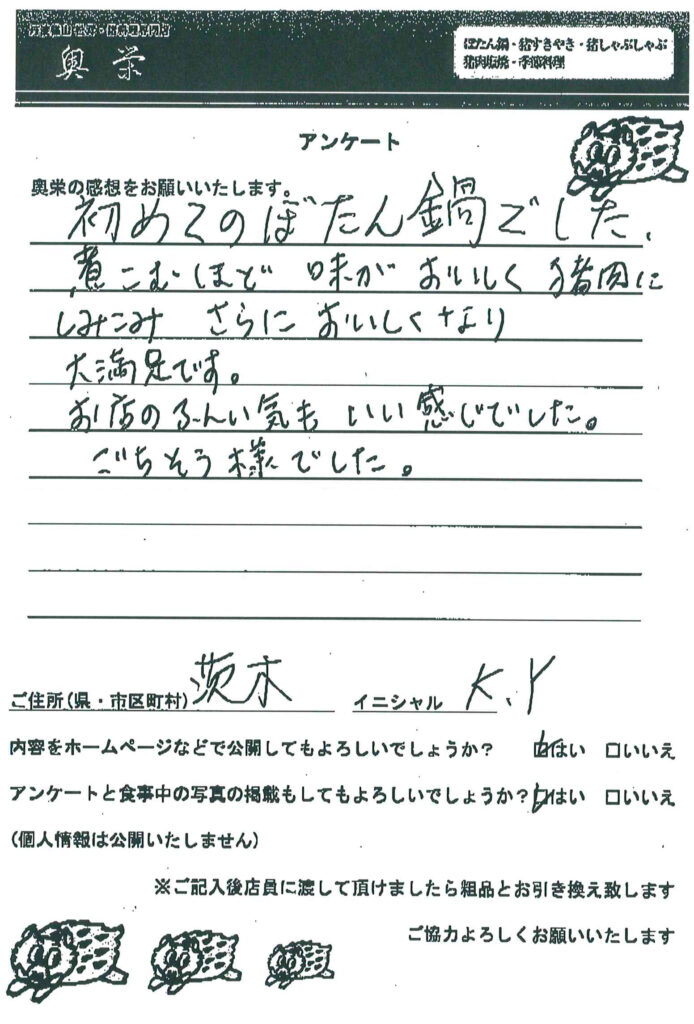 奥栄
ぼたん鍋・猪すきやき・猪しゃぶしゃぶ
猪肉販売・季節料理
アンケート
奥栄の感想をお願いいたします。
初めてのぼたん鍋でした、
煮こむほど 味が おいしく 猪肉に
しみこみ さらに おいしくなり
大満足です。
お店のふんい気も いい感じでした。
ごちそう様でした。
ご住所(県・市区町村) 茨木 イニシャル K.Y
内容をホームページなどで公開してもよろしいでしょうか? はい いいえ
アンケートと食事中の写真の掲載もしてもよろしいでしょうか? はい いいえ
(個人情報は公開いたしません)
※ご記入後店員に渡して頂けましたら粗品とお引き換え致します
ご協力よろしくお願いいたします